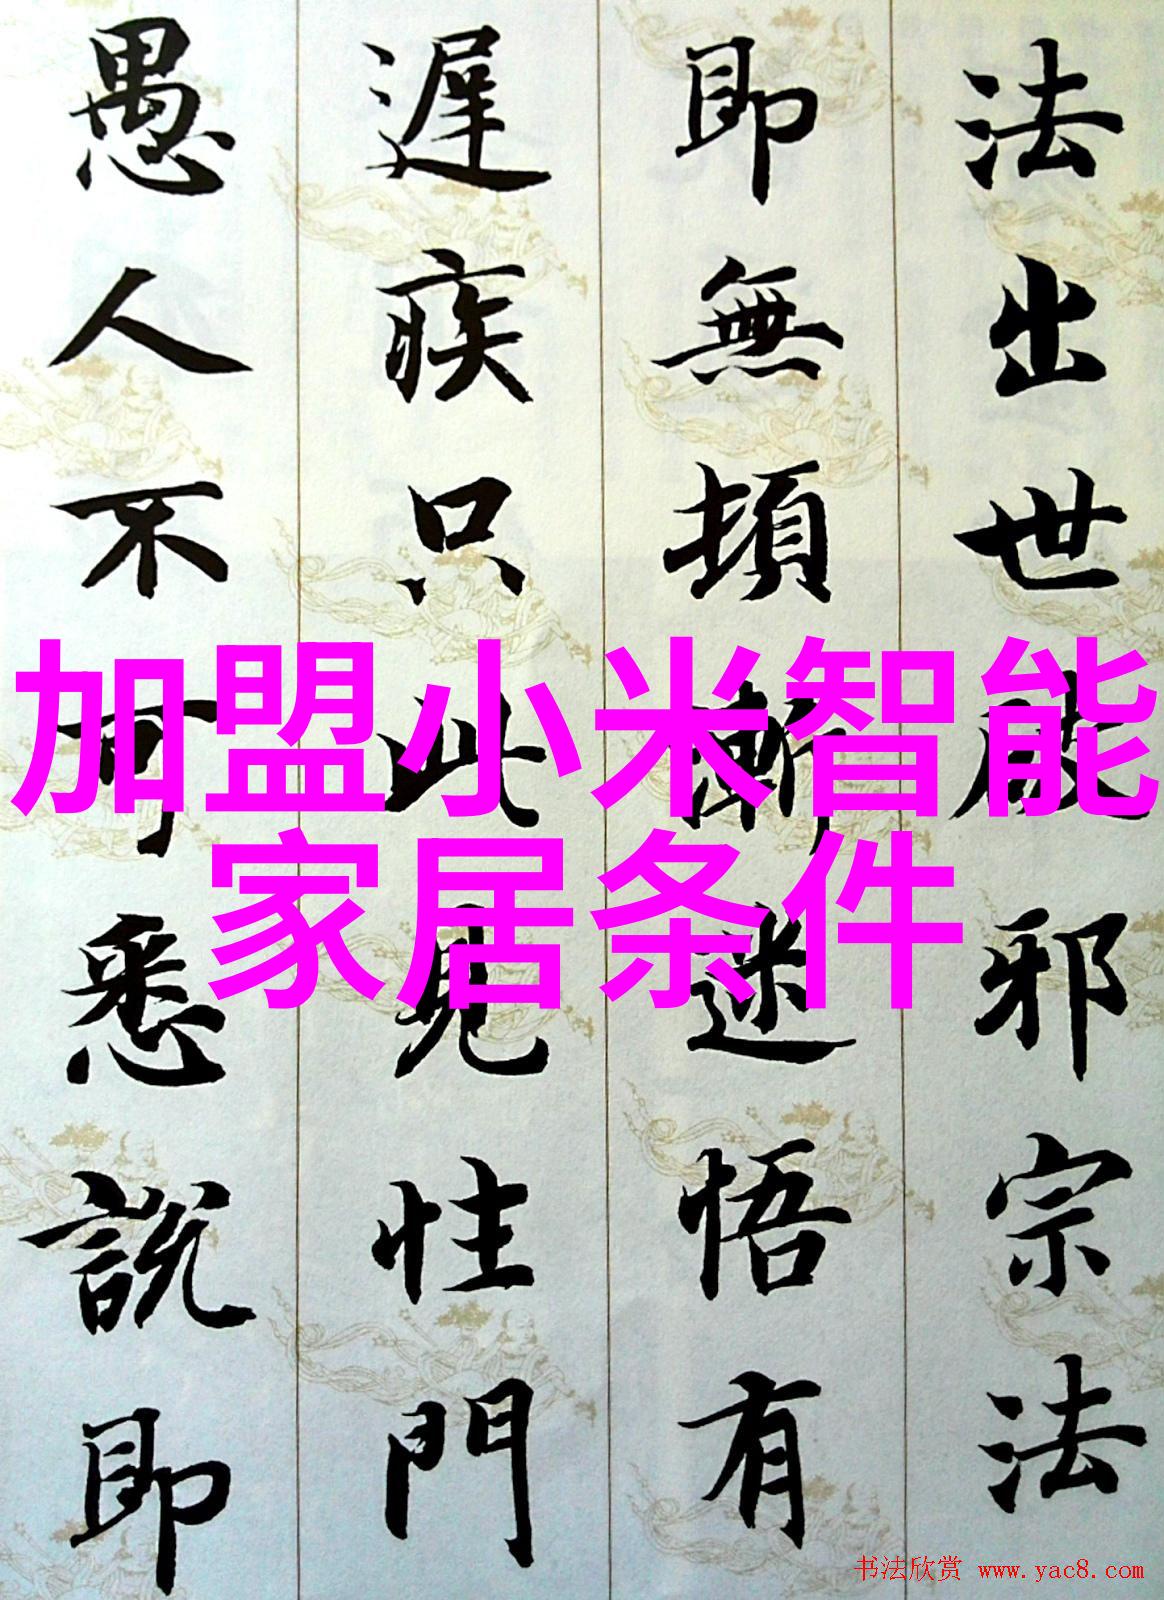 法出世破邪宗法
即無頓漸迷悟有
遲疾只此見性門
愚人不可悉說即
加盟小米智能
家居条件
书法欣赏 www.yac8.com